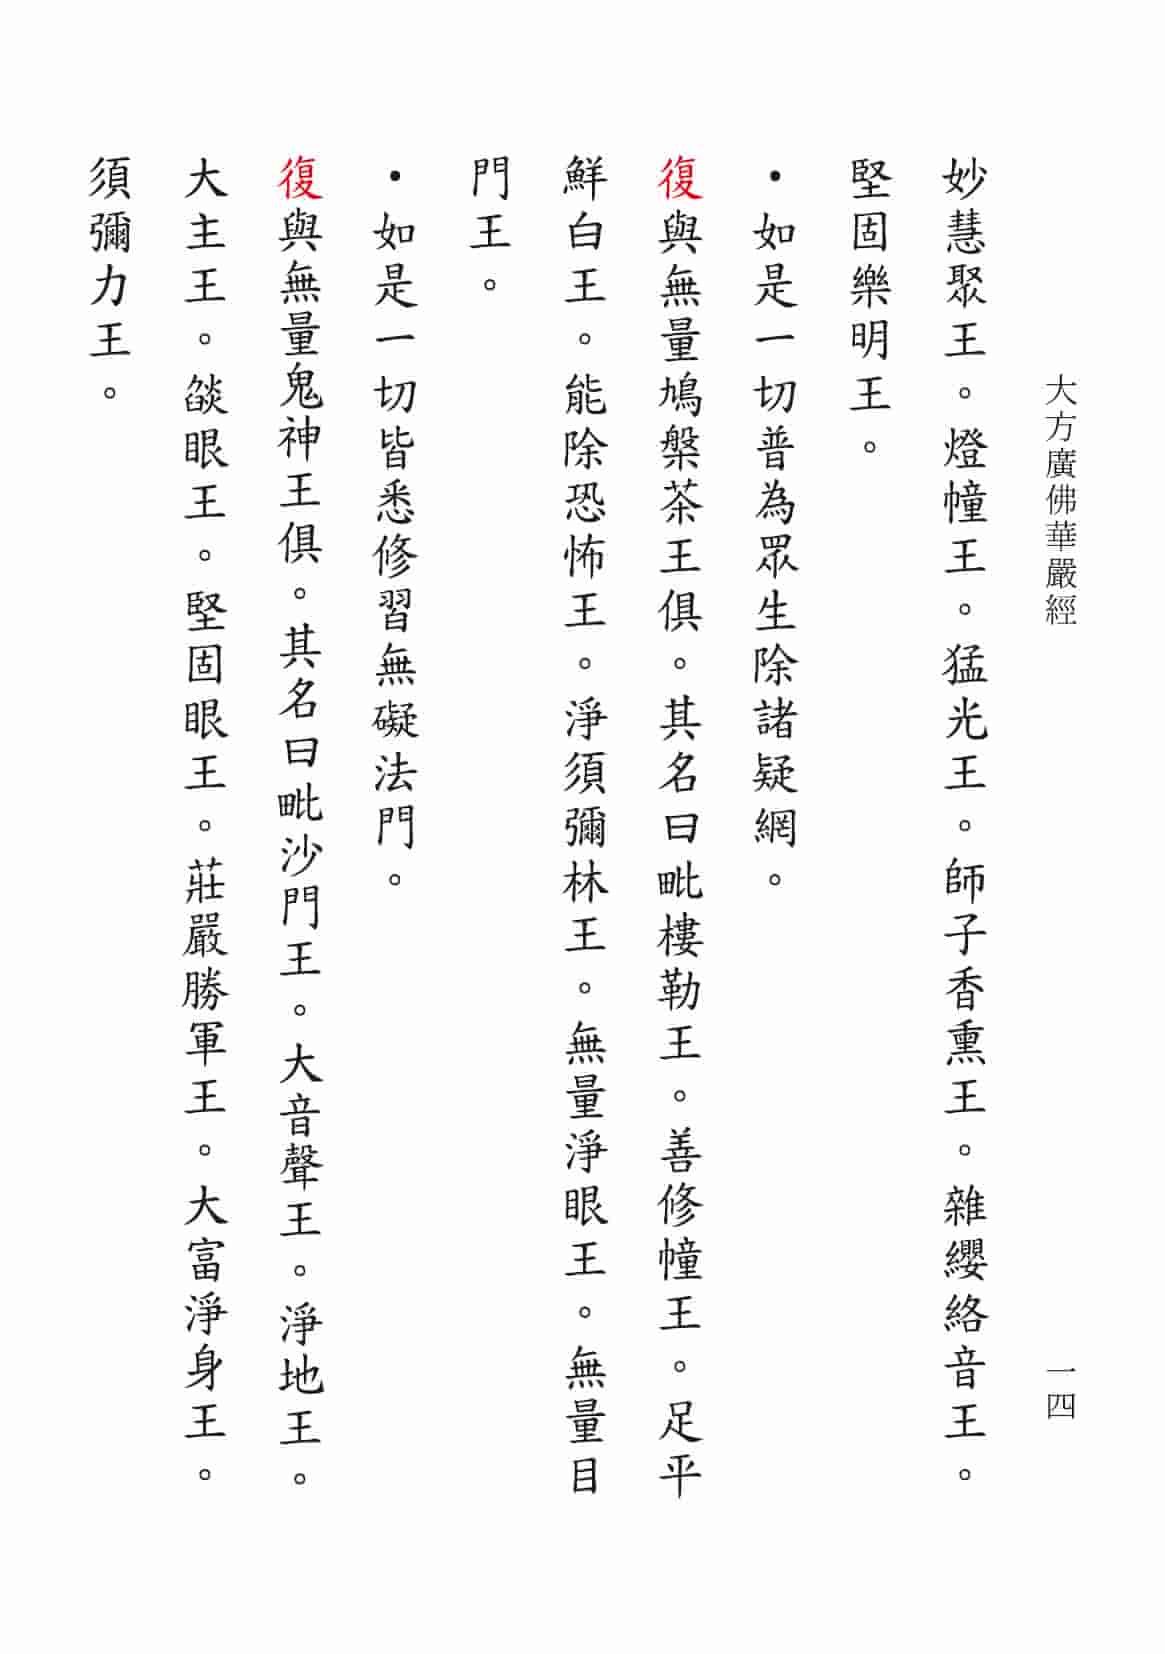 大方廣佛華嚴經
一四
妙慧聚王。燈幢王。猛光王。師子香熏王。雜纓絡音王。
堅固樂明王。
•如是一切普為眾生除諸疑網。
復與無量鳩槃茶王俱。其名曰毗樓勒王。善修幢王。足平
鮮白王。能除恐怖王。淨須彌林王。無量淨眼王。無量目
門王。
•如是一切皆悉修習無礙法門。
復與無量鬼神王俱。其名曰毗沙門王。大音聲王。淨地王。
大主王。燄眼王。堅固眼王。莊嚴勝軍王。大富淨身王。
須彌力王。